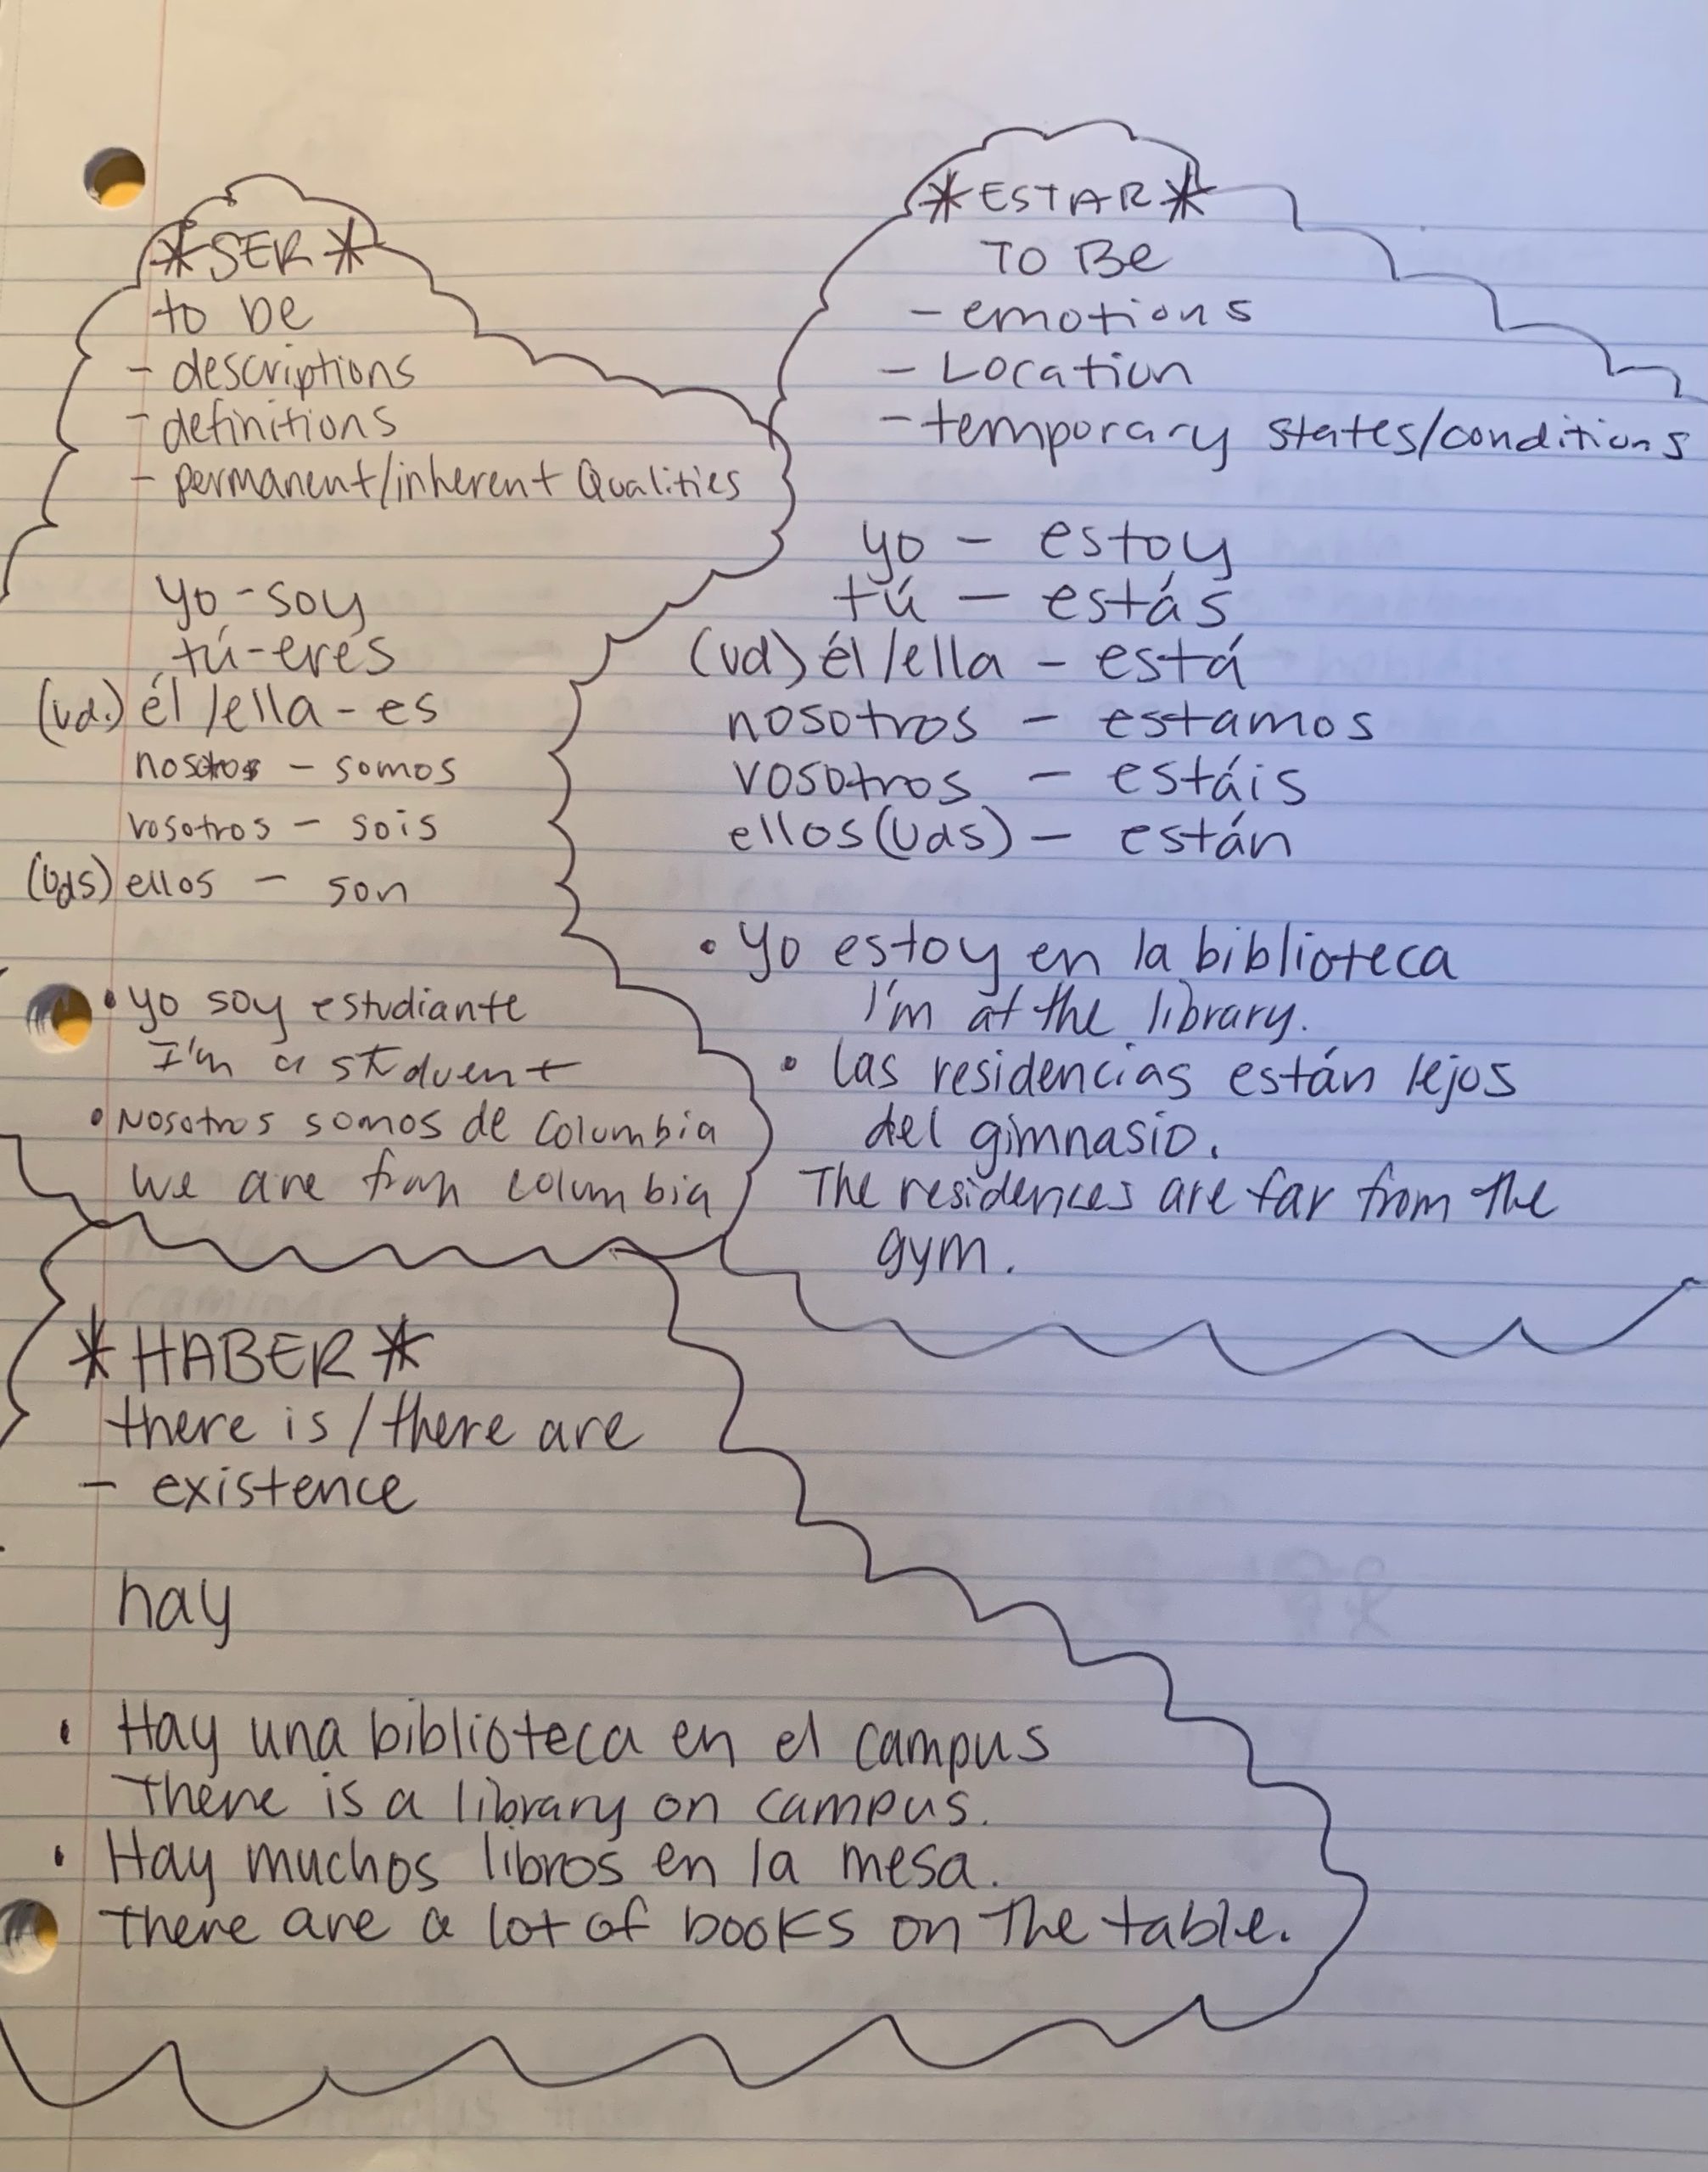 *SER*
to be
- descriptions
- definitions
- permanent/inherent Qualities
yo - soy
tú - eres
(vd.) él /ella - es
nosotros - somos
vosotros - sois
(Uds) ellos - son
• yo soy estudiante
I'm a student
• Nosotros somos de Columbia
we are from columbia
*ESTAR*
TO Be
- emotions
- Location
- temporary states/conditions
yo - estoy
tú - estás
(vd) él /ella - está
nosotros - estamos
vosotros - estáis
ellos (Uds) - están
• Yo estoy en la biblioteca
I'm at the library.
• las residencias están lejos
del gimnasio.
The residences are far from the
gym.
*HABER*
there is / there are
- existence
hay
• Hay una biblioteca en el campus
There is a library on campus.
• Hay muchos libros en la mesa.
there are a lot of books on the table.